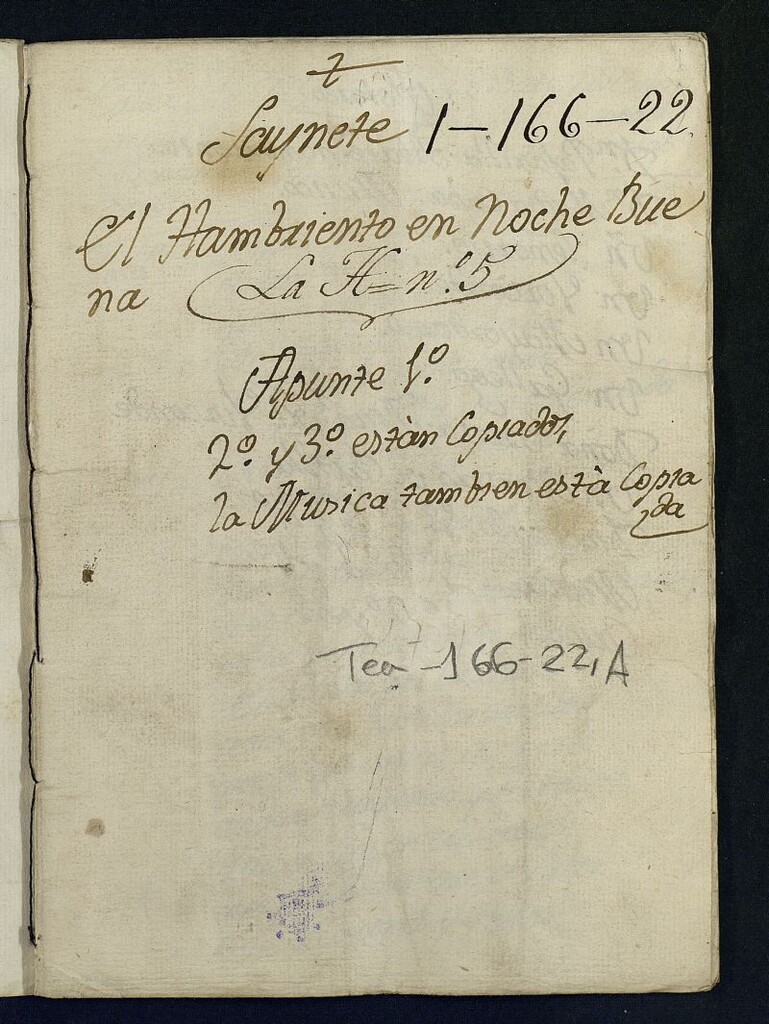 Saynete 1-166-22
El Hambriento en Noche Bue
na La H= n.º 5
Apunte 1.º
2.º y 3.º estàn Copiados,
la Musica tambien està Copia
da
Tea -166-22, A